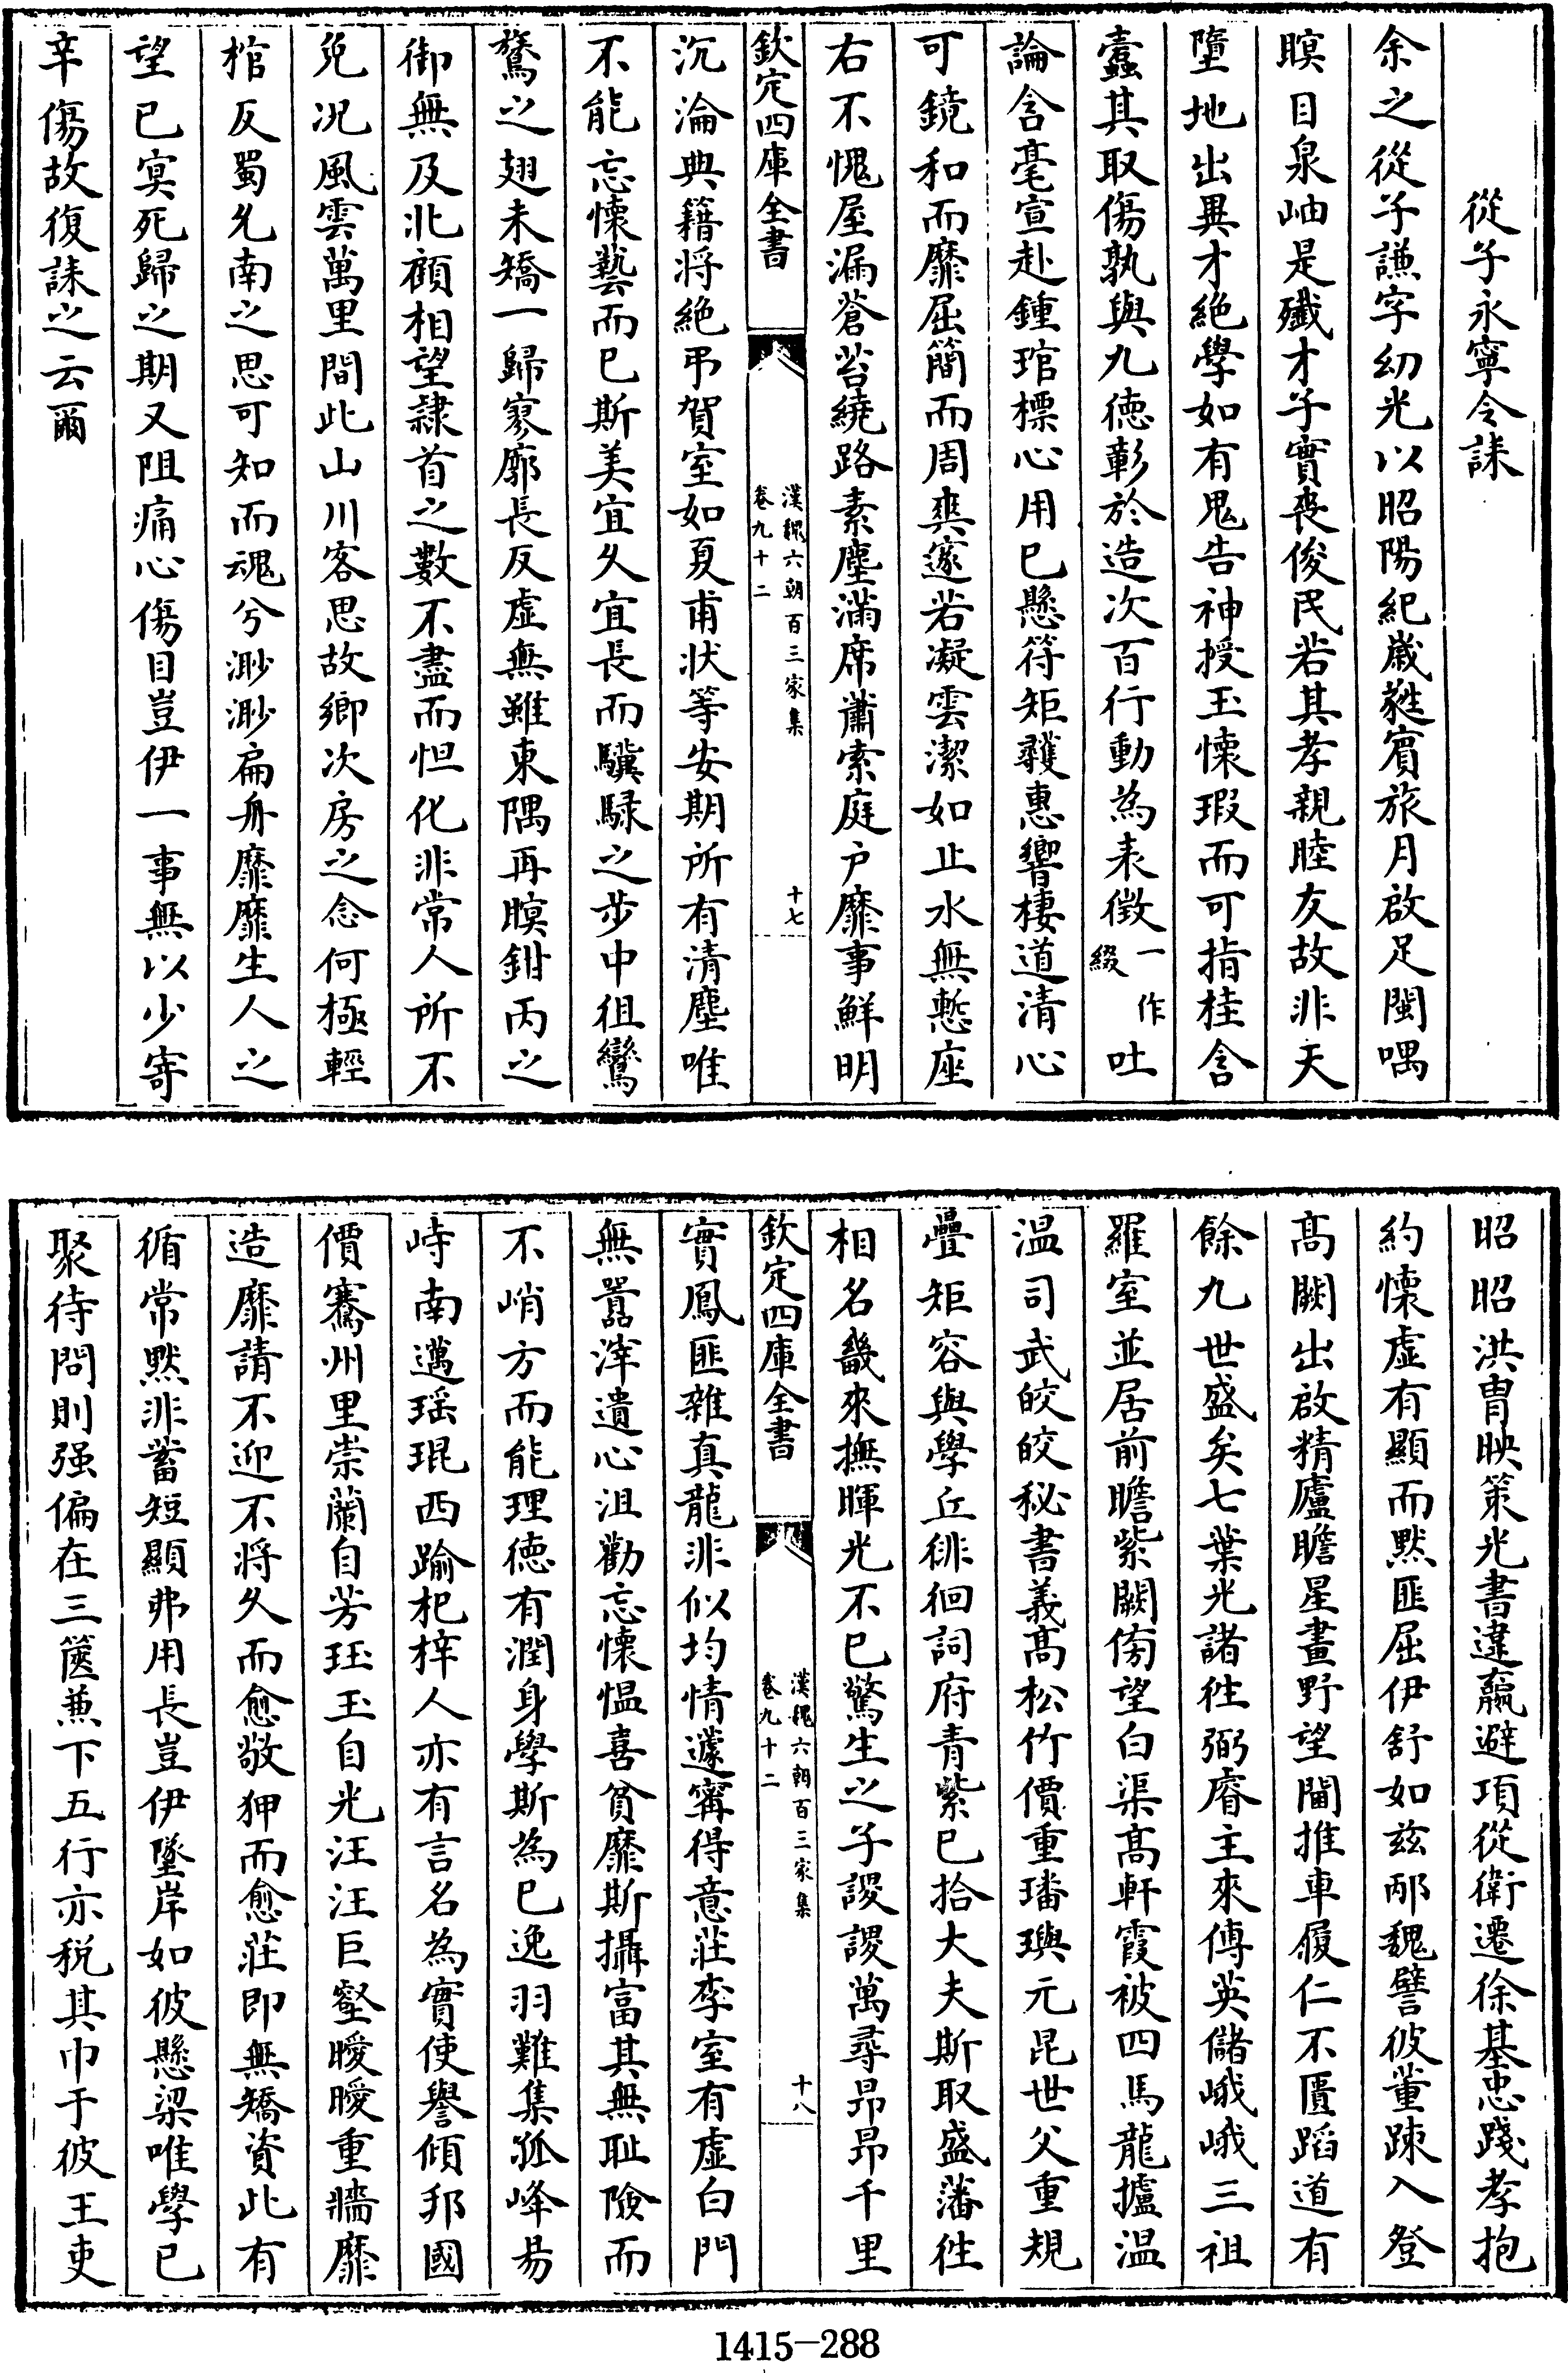 從子永寧令誄
余之從子謙字幼光以昭陽紀歲蕤賓旅月啟足閩喁
瞑目泉岫是殲才子實喪俊民若其孝親睦友故非天
墮地出異才絕學如有鬼告神授玉懷瑕而可指桂含
蠹其取傷孰與九德彰於造次百行動為表徵一作綴吐
論含毫宣赴鍾琯標心用已懸符矩矱惠響棲道清心
可鏡和而靡屈簡而周爽邃若凝雲潔如止水無慙座
右不愧屋漏蒼苔繞路素塵滿席蕭索庭户靡事鮮明
欽定四庫全書
漢魏六朝百三家集
卷九十二
十七
沉淪典籍将絶弔賀室如夏甫狀等安期所有清塵唯
不能忘懷藝而已斯美宜久宜長而驥騄之步中徂鸞
鶩之翅未矯一歸寥廓長反虛無雖東隅再瞑鉗丙之
御無及北顧相望隷首之數不盡而怛化非常人所不
免況風雲萬里間此山川客思故鄉次房之念何極輕
棺反蜀允南之思可知而魂兮渺渺扁舟靡靡生人之
望已冥死歸之期又阻痛心傷目豈伊一事無以少寄
辛傷故復誄之云爾
昭昭洪胄映策光書違嬴避項從衛遷徐基忠踐孝抱
約懷虛有顯而默匪屈伊舒如兹邴魏譬彼董踈入登
髙闕出啟精廬瞻星畫野望閫推車履仁不匱蹈道有
餘九世盛矣七葉光諸徃弼睿主來傅英儲峨峨三祖
羅室並居前瞻紫闕傍望白渠髙軒霞被四馬龍攄温
温司武皎皎秘書義髙松竹價重璠璵元昆世父重規
疊矩容與學丘徘徊詞府青紫已拾大夫斯取盛藩徃
相名畿來撫暉光不已驚生之子謖謖萬尋昂昂千里
欽定四庫全書
漢魏六朝百三家集
卷九十二
十八
實鳳匪雜真龍非似均情遽寗得意莊李室有虛白門
無囂滓遺心沮勸忘懷愠喜貧靡斯攝富其無耻險而
不峭方而能理德有潤身學斯為已逸羽難集孤峰易
峙南邁瑶琨西踰杞梓人亦有言名為實使譽傾邦國
價騫州里崇蘭自芳珏玉自光汪汪巨壑曖曖重牆靡
造靡請不迎不將久而愈敬狎而愈莊即無矯資此有
循常默非蓄短顯弗用長豈伊墜岸如彼懸梁唯學已
聚待問則强偏在三篋兼下五行亦税其巾于彼王吏
1415-288